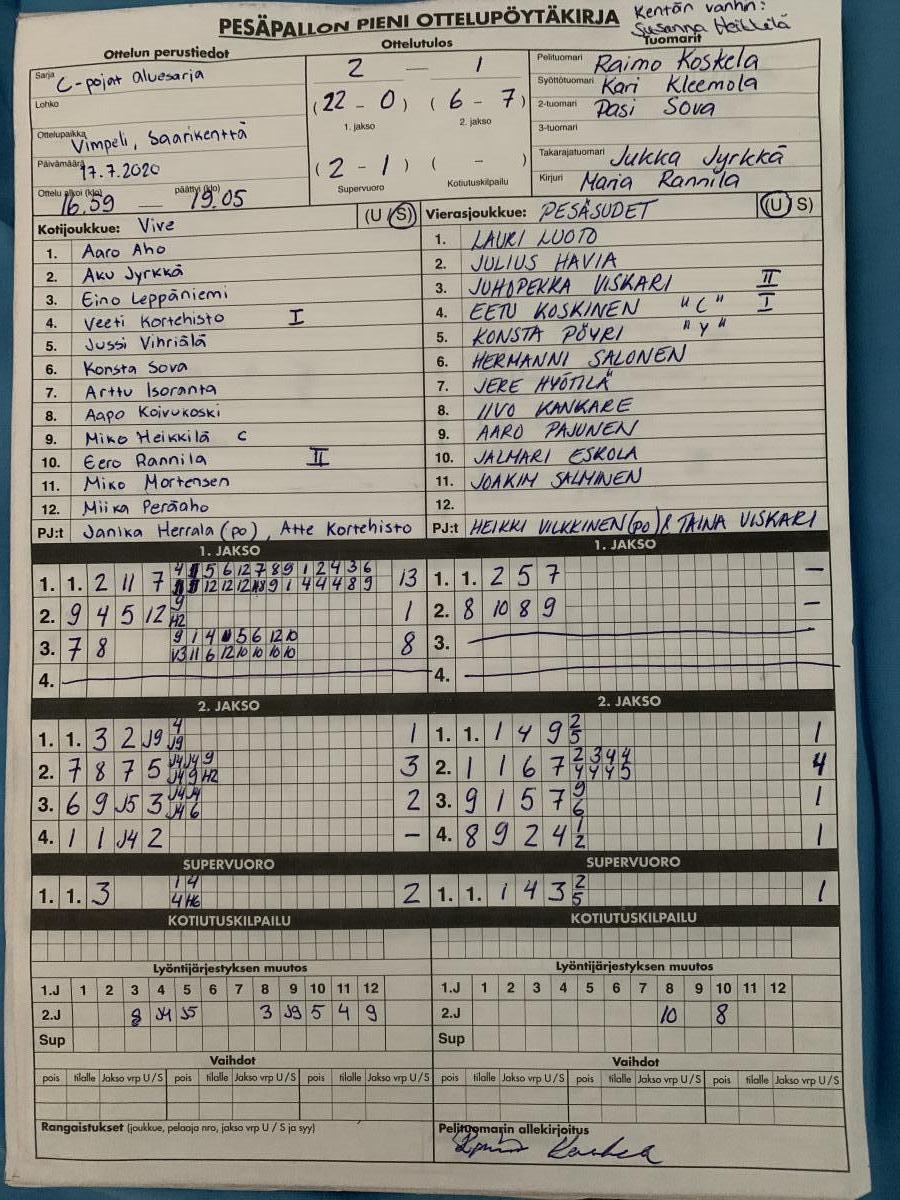 PESÄPALLON PIENI OTTELUPÖYTÄKIRJA
Kentän vanhin:
Susanna Heikkilä
Ottelun perustiedot
Ottelutulos
Tuomarit
Sarja C-pojat aluesarja
Lohko
Ottelupaikka Vimpeli, Saarikenttä
Päivämäärä 17.7.2020
Ottelu alkoi (klo) päättyi (klo)
16.59 — 19.05
2 — 1
(22 - 0) (6 - 7)
1. jakso 2. jakso
(2 - 1) ( - )
Supervuoro Kotiutuskilpailu
Pelituomari Raimo Koskela
Syöttötuomari Kari Kleemola
2-tuomari Pasi Sova
3-tuomari
Takarajatuomari Jukka Jyrkkä
Kirjuri Maria Rannila
Kotijoukkue: Vive (U S)
1. Aaro Aho
2. Aku Jyrkkä
3. Eino Leppäniemi
4. Veeti Kortehisto I
5. Jussi Vihriälä
6. Konsta Sova
7. Arttu Isoranta
8. Aapo Koivukoski
9. Miko Heikkilä C
10. Eero Rannila II
11. Miko Mortensen
12. Miika Peräaho
PJ:t Janika Herrala (po), Atte Kortehisto
Vierasjoukkue: PESÄSUDET (U S)
1. LAURI LUOTO
2. JULIUS HAVIA
3. JUHOPEKKA VISKARI II
4. EETU KOSKINEN "C" I
5. KONSTA PÖYRI "Y"
6. HERMANNI SALONEN
7. JERE HYÖTILÄ
8. IIVO KANKARE
9. AARO PAJUNEN
10. JALMARI ESKOLA
11. JOAKIM SALMINEN
12.
PJ:t HEIKKI VILKKINEN (po) & TAINA VISKARI
1. JAKSO
1. 1. 2 11 7 13
2. 9 4 5 12 9 H2 1
3. 7 8 8
4.
1. JAKSO
1. 1. 2 5 7 –
2. 8 10 8 9 –
3.
4.
2. JAKSO
1. 1. 3 2 J9 4 J9 1
2. 7 8 7 5 J4 J4 9 J4 9 H2 3
3. 6 9 J5 3 J4 J4 J4 6 2
4. 1 1 J4 2 –
2. JAKSO
1. 1. 1 4 9 2 5 1
2. 1 1 6 7 2 3 4 4 4 4 4 5 4
3. 9 1 5 7 9 6 1
4. 8 9 2 4 1 2 1
SUPERVUORO
1. 1. 3 1 4 4 H6 2
SUPERVUORO
1. 1. 1 4 3 2 5 1
KOTIUTUSKILPAILU
KOTIUTUSKILPAILU
Lyöntijärjestyksen muutos
1.J 1 2 3 4 5 6 7 8 9 10 11 12
2.J 8 J4 J5 3 J9 5 4 9
Sup
Lyöntijärjestyksen muutos
1.J 1 2 3 4 5 6 7 8 9 10 11 12
2.J 10 8
Sup
Vaihdot
pois tilalle Jakso vrp U / S pois tilalle Jakso vrp U / S pois tilalle Jakso vrp U / S
Vaihdot
pois tilalle Jakso vrp U / S pois tilalle Jakso vrp U / S pois tilalle Jakso vrp U / S
Rangaistukset (joukkue, pelaaja nro, jakso vrp U / S ja syy)
Pelituomarin allekirjoitus